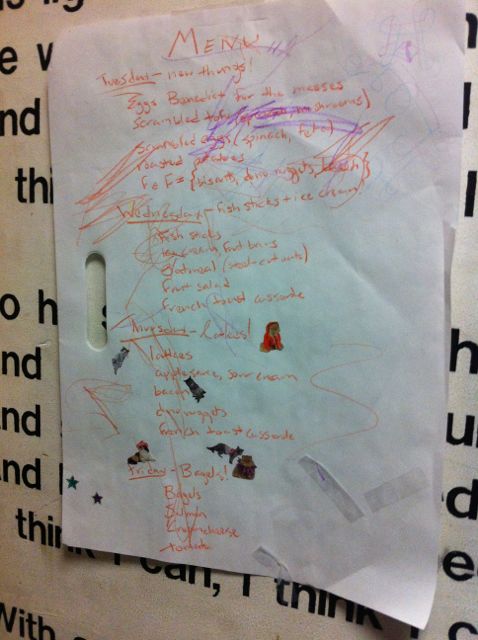 MENU
Tuesday - new things!
Eggs Benedict for the masses
scrambled tofu (spinach, mushrooms)
scrambled eggs (spinach, feta)
roasted potatoes
F & F = {biscuits, dino nuggets, bacon}
Wednesday - fish sticks + ice cream!
fish sticks
ice cream, fruit bars
oatmeal (steel-cut oats)
fruit salad
french toast casserole
Thursday - latkes!
latkes
applesauce, sour cream
bacon
dino nuggets
french toast casserole
Friday - Bagels!
Bagels
Salmon
Creamcheese
tomato
think I can, I think I
With